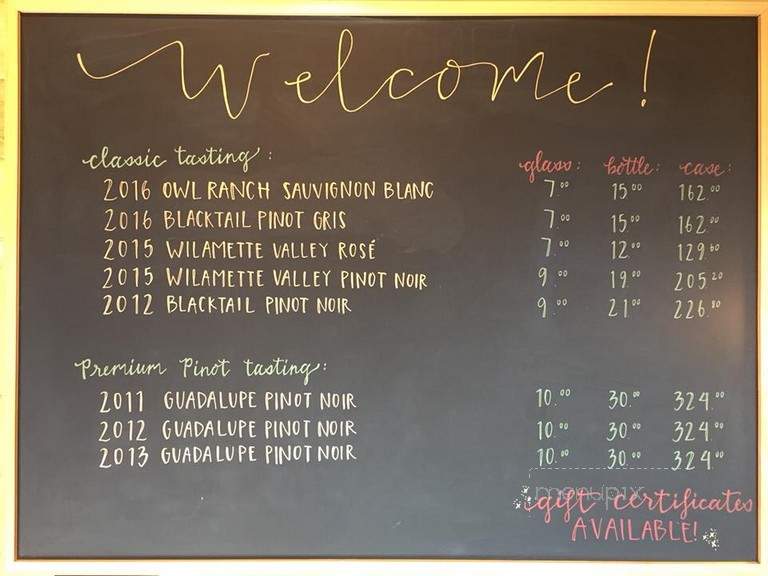 Welcome!
classic tasting: glass: bottle: case:
2016 OWL RANCH SAUVIGNON BLANC 7.00 15.00 162.00
2016 BLACKTAIL PINOT GRIS 7.00 15.00 162.00
2015 WILAMETTE VALLEY ROSÉ 7.00 12.00 129.60
2015 WILAMETTE VALLEY PINOT NOIR 9.00 19.00 205.20
2012 BLACKTAIL PINOT NOIR 9.00 21.00 226.80
Premium Pinot tasting:
2011 GUADALUPE PINOT NOIR 10.00 30.00 324.00
2012 GUADALUPE PINOT NOIR 10.00 30.00 324.00
2013 GUADALUPE PINOT NOIR 10.00 30.00 324.00
menupix
gift certificates
AVAILABLE!